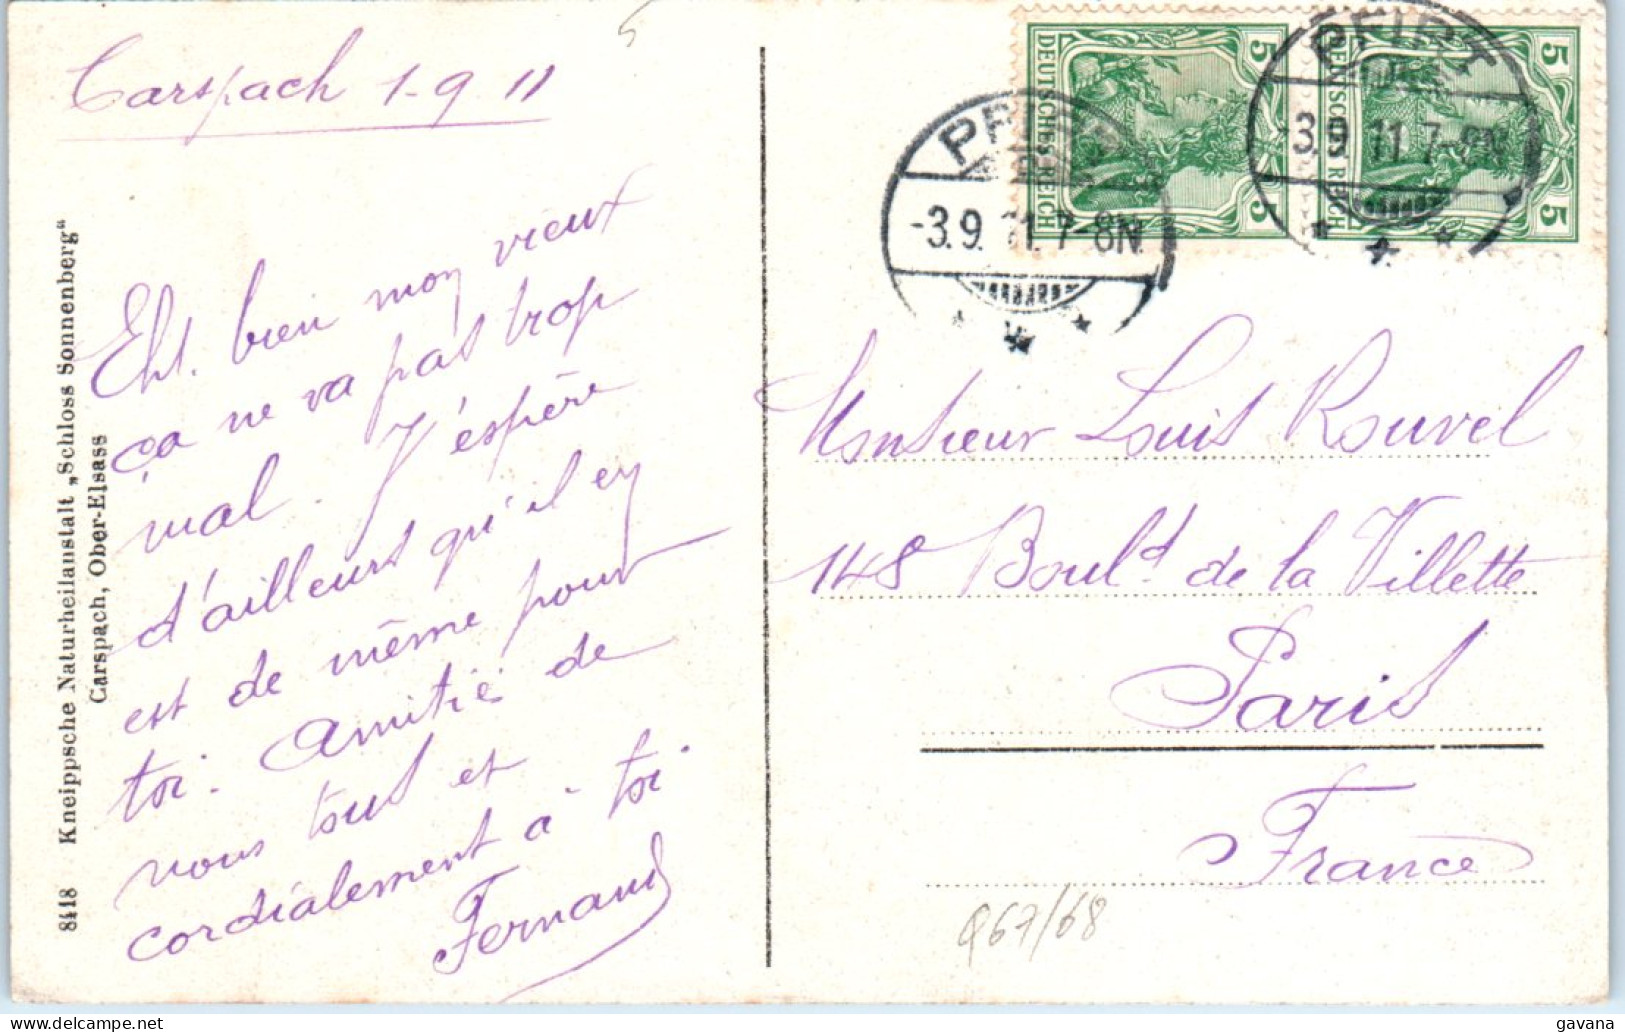 Carspach 1-9 11
5
Eh. bien mon vieux
ça ne va pas trop
mal. J'espère
d'ailleurs qu'il en
est de même pour
toi. Amitié de
nous tous et
cordialement à toi
Fernand
8418 Kneippsche Naturheilanstalt „Schloss Sonnenberg"
Carspach, Ober-Elsass
DEUTSCHES REICH
5
5
DEUTSCHES REICH
5
5
PFIRT
-3.9.11.7-8N.
PFIRT
-3.9.11.7-8N
Monsieur Louis Rouvel
148 Boul.d de la Villette
Paris
France
967/68
gavana